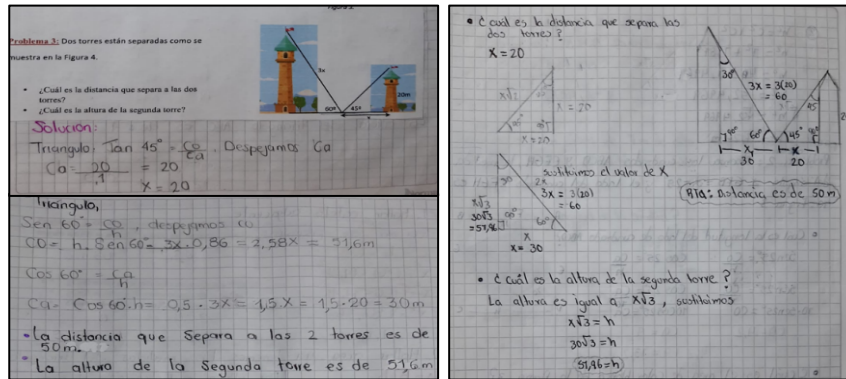 Problema 3: Dos torres están separadas como se
muestra en la Figura 4.
• ¿Cuál es la distancia que separa a las dos
torres?
• ¿Cuál es la altura de la segunda torre?
3x
20m
60º 45º
x
Solución:
Triangulo, Tan 45° = co/ca. Despejamos Ca
Ca = 20/1 = 20
x = 20
Triangulo,
Sen 60° = co/h, despejamos co
CO = h. Sen 60° = 3x. 0,86 = 2,58x = 51,6m
Cos 60° = ca/h
Ca = Cos 60°. h = 0,5 . 3x = 1,5x = 1,5 . 20 = 30m
• La distancia que Separa a las 2 torres es de
50m.
• La altura de la Segunda torre es de 51,6m
• ¿ cuál es la distancia que separa las
dos torres?
x = 20
x√2
x = 20
90°
x = 20
30°
3x = 3(20)
= 60
45°
90° 60° 45° 90°
x x
30 20
sustituimos el valor de x
30°
2x
3x = 3(20)
= 60
x√3
30√3
= 51,96
90°
60°
x
x = 30
RTA: Distancia es de 50m
• ¿ cuál es la altura de la segunda torre?
La altura es igual a x√3, sustituimos
x√3 = h
30√3 = h
51,96 = h